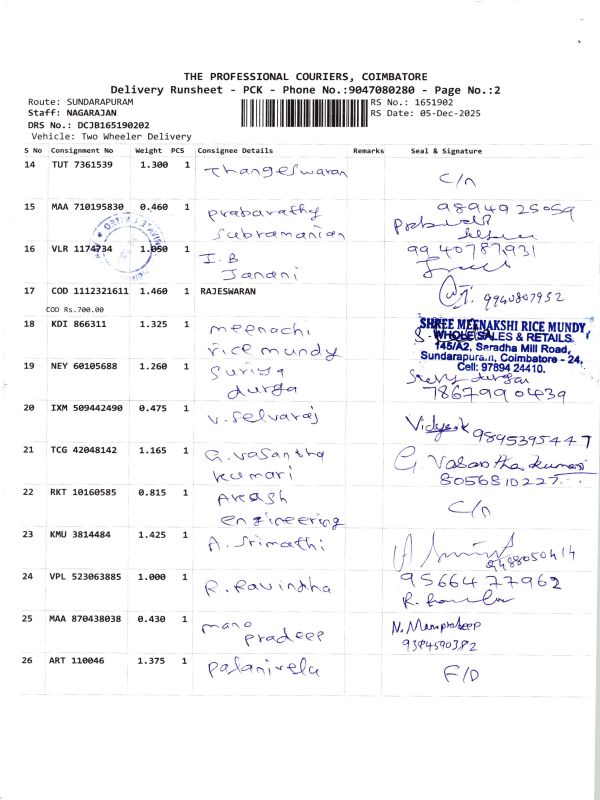 THE PROFESSIONAL COURIERS, COIMBATORE
Delivery Runsheet - PCK - Phone No.:9047080280 - Page No.:2
Route: SUNDARAPURAM
RS No.: 1651902
Staff: NAGARAJAN
RS Date: 05-Dec-2025
DRS No.: DCJB165190202
Vehicle: Two Wheeler Delivery
S No Consignment No Weight PCS Consignee Details Remarks Seal & Signature
14 TUT 7361539 1.300 1 Thangeswaran C/n
15 MAA 710195830 0.460 1 Prabarathy 9894925059
Subramanian
16 VLR 1174734 1.050 1 I.B 9940787931
Janani
17 COD 1112321611 1.460 1 RAJESWARAN 9940807952
COD Rs.700.00
18 KDI 866311 1.325 1 meenachi
rice mundy
SHREE MEENAKSHI RICE MUNDY
WHOLE SALES & RETAILS
145/A2, Saradha Mill Road,
Sundarapuram, Coimbatore - 24.
Cell: 97894 24410.
19 NEY 60105688 1.260 1 Suriya
durga 7867990439
20 IXM 509442490 0.475 1 V. Selvaraj 9895395447
21 TCG 42048142 1.165 1 G. Vasantha G. Vasantha kumari
kumari 8056810227
22 RKT 10160585 0.815 1 Akash C/n
engineering
23 KMU 3814484 1.425 1 A. Srimathi 9488050414
24 VPL 523063885 1.000 1 R. Ravindha 9566477962
25 MAA 870438038 0.430 1 mano N. Manopradeep
pradeep 9384590382
26 ART 110046 1.375 1 Palanivelu F/D